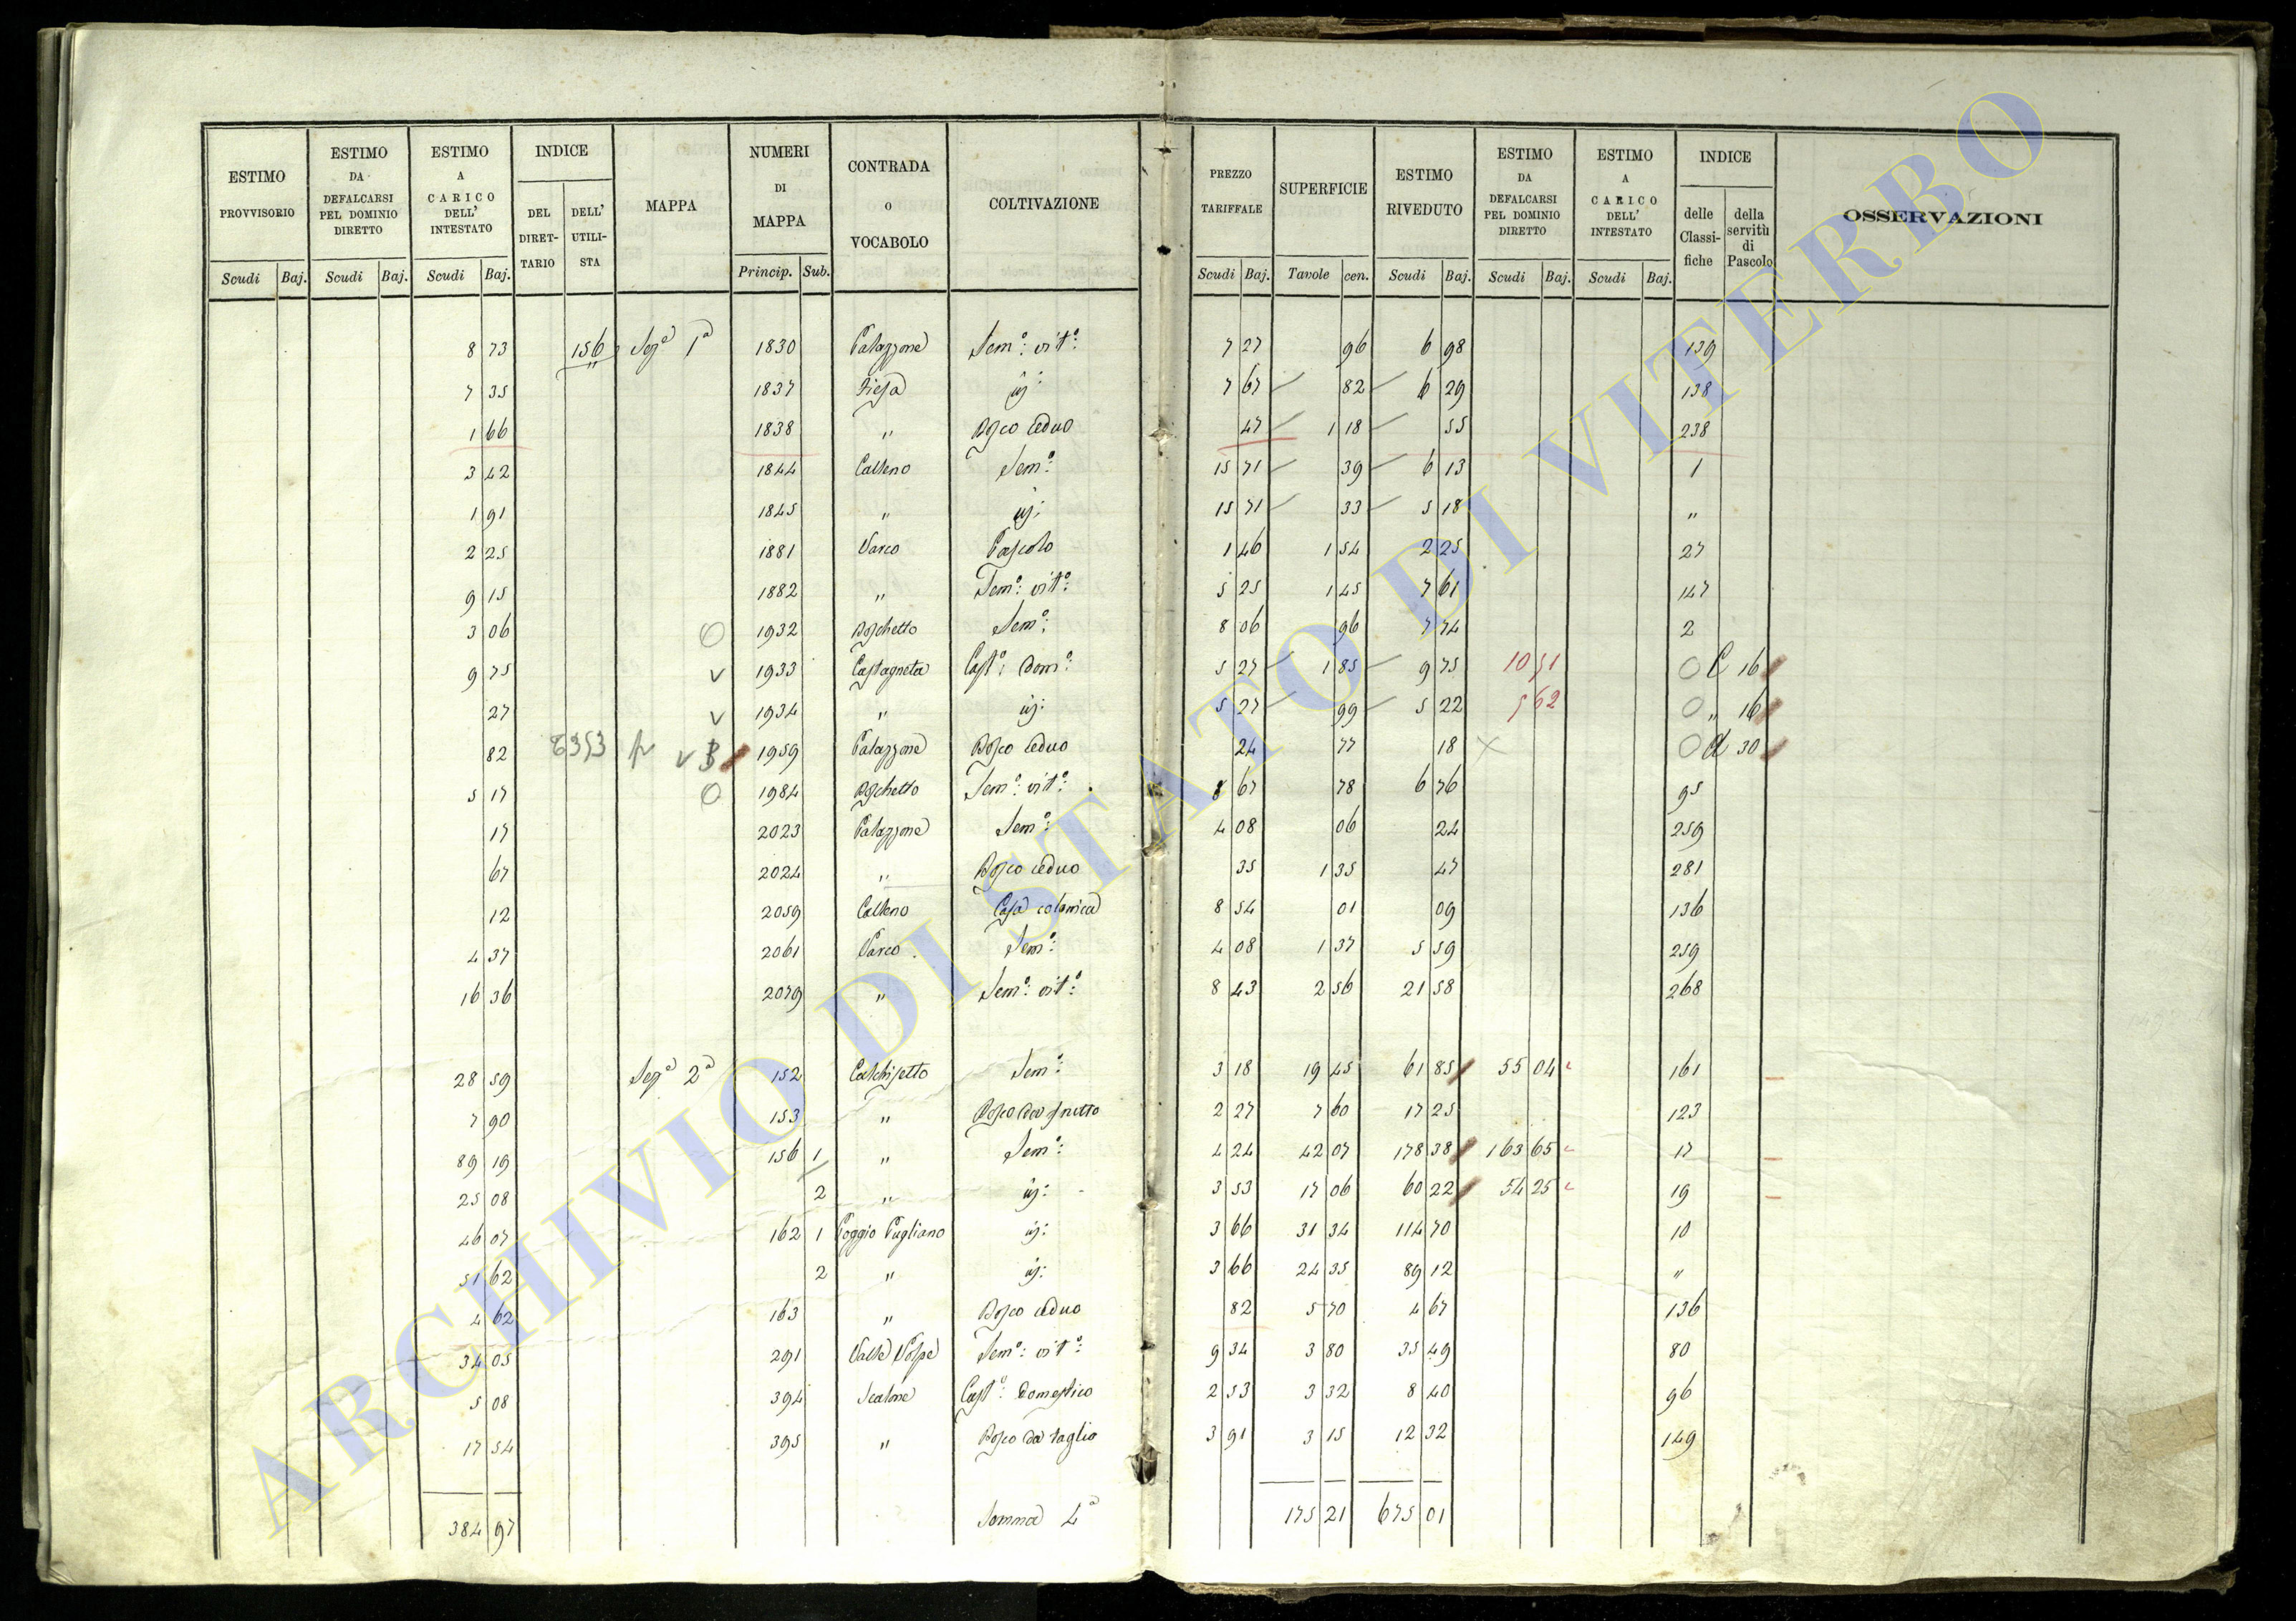 ESTIMO PROVVISORIO Scudi Baj. | ESTIMO DA DEFALCARSI PEL DOMINIO DIRETTO Scudi Baj. | ESTIMO A CARICO DELL' INTESTATO Scudi Baj. | INDICE DEL DIRET-TARIO DELL' UTILI-STA | MAPPA | NUMERI DI MAPPA Princip. Sub. | CONTRADA o VOCABOLO | COLTIVAZIONE | PREZZO TARIFFALE Scudi Baj. | SUPERFICIE Tavole cen. | ESTIMO RIVEDUTO Scudi Baj. | ESTIMO DA DEFALCARSI PEL DOMINIO DIRETTO Scudi Baj. | ESTIMO A CARICO DELL' INTESTATO Scudi Baj. | INDICE delle Classi-fiche della servitù di Pascolo | OSSERVAZIONI
8 73 156 Sezᵉ 1ª 1830 Palazzone Semº: vitº: 7 27 96 6 98 139
7 35 1837 id: 7 67 82 6 29 138
1 66 1838 " Bosco ceduo 47 1 18 55 238
3 42 1844 Calleno Semº: 15 71 39 6 13 1
1 91 1845 " id: 15 71 33 5 18 "
2 25 1881 Varco Pascolo 1 46 1 54 2 25 27
9 15 1882 " Semº: vitº: 5 25 1 45 7 61 147
3 06 1932 Boschetto Semº: 8 06 96 7 74 2
9 75 v 1933 Castagneta Castº: Domº: 5 27 1 85 9 75 10 51 C 16
27 v 1934 " id: 5 27 99 5 22 5 62 " 16
82 6353 v B 1959 Palazzone Bosco ceduo 24 77 18 × d 30
5 17 1984 Boschetto Semº: vitº: 8 67 78 6 76 95
17 2023 Palazzone Semº: 4 08 06 24 259
67 2024 " Bosco ceduo 35 1 35 47 281
12 2059 Calleno Casa colonica 8 54 01 09 136
4 37 2061 Varco Semº: 4 08 1 37 5 59 259
16 36 2079 " Semº: vitº: 8 43 2 56 21 58 268
28 59 Sezᵉ 2ª 152 Calchisetto Semº: 3 18 19 45 61 85 55 04 161
7 90 153 " Bosco da frutto 2 27 7 60 17 25 123
89 19 156 1 " Semº: 4 24 42 07 178 38 163 65 17
25 08 2 " id: 3 53 17 06 60 22 54 25 19
46 07 162 1 Poggio Pugliano id: 3 66 31 34 114 70 10
51 62 2 " id: 3 66 24 35 89 12 "
4 62 163 " Bosco ceduo 82 5 70 4 67 136
34 05 291 Valle Volpe Semº: vitº: 9 34 3 80 35 49 80
5 08 394 Scalone Castº: Domestico 2 53 3 32 8 40 96
17 54 395 " Bosco da taglio 3 91 3 15 12 32 149
384 97 Somma 4ª 175 21 675 01
ARCHIVIO DI STATO DI VITERBO